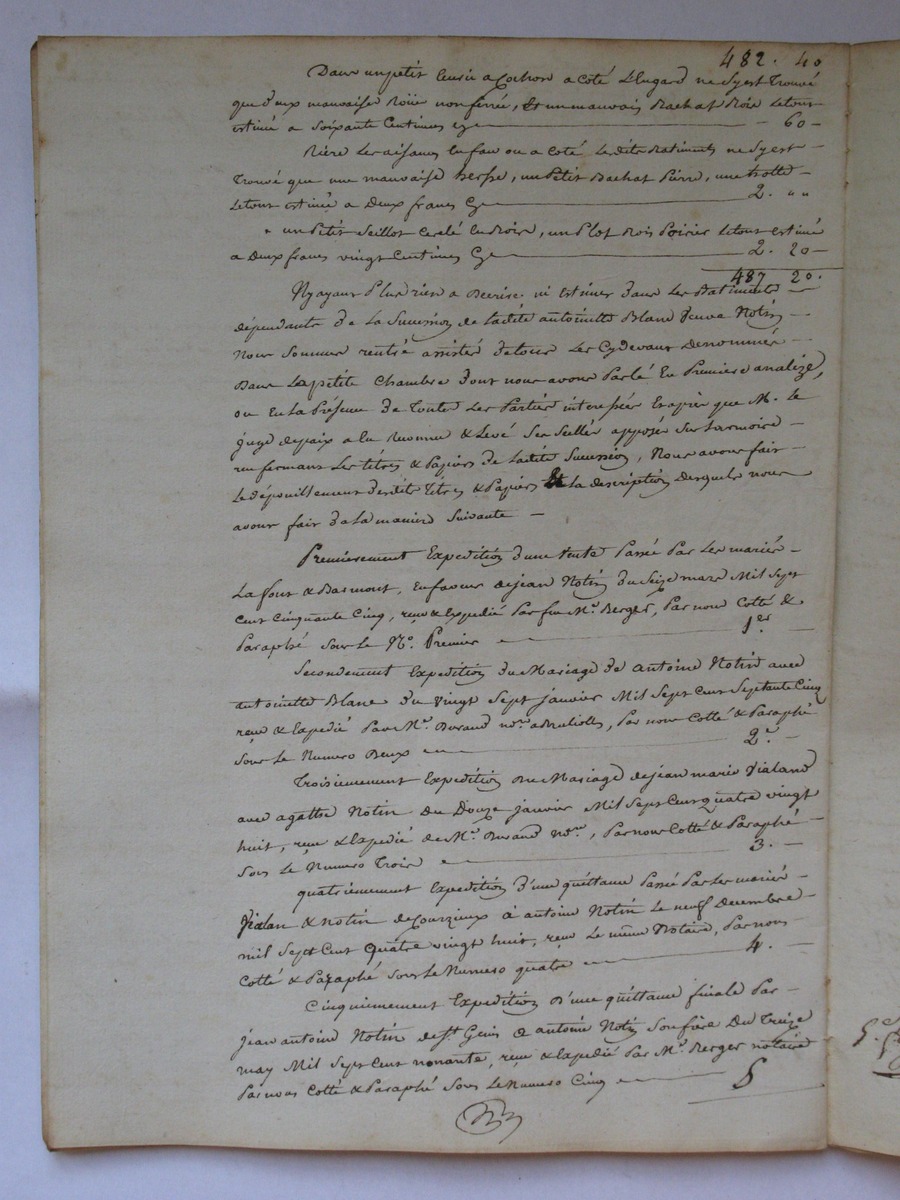 482. 40
Dans un petit Ecurie a Cochon a coté L'Engard ne S'y est Trouvé
que deux mauvaise Roüe non ferrée, Et un mauvais Bachat Bois Le tout
estimé a Soixante Centimes cy — 60 —
Riere Les aisances En faw ou a coté Lesdits Batiments ne S'y est —
Trouvé que une mauvaise herse, un Petit Bachat Pierre, une hotte —
Le tout estimé a Deux francs Cy — 2. " "
un Petit Seillot Cerclé En Boire, un Plot Bois Poirier Le tout estimé
a Deux francs vingt Centimes Cy — 2. 20 —
487 20.
N'y ayant Plus rien a Decrire ni estimer dans Les Batiments —
dépendants de La Succession de Ladite antoinette Blanc veuve Notin —
Nous Sommes rentré assistés de tous Les Cydevant Denommés —
Dans La petite Chambre dont nous avons Parlé En Premiere analize,
ou En La Présence de Toutes Les Parties interessées Et apres que M. Le
juge de paix a Reconnu & Levé Ses Scellés apposés Sur L'armoire —
renfermant Les titres & Papiers de Ladite Succession, Nous avons fait —
Le dépouillement desdits Titres & Papiers Et La description desquels nous
avons fait de La maniere Suivante —
Premierement Expedition d'une vente Passé Par Les mariés —
Lafont & Barmont, En faveur de jean Notin du Seize mars Mil Sept
Cent Cinquante Cinq, reçue & Expedié Par feu Me. Berger, Par nous Cotté &
Paraphé Sous Le No. Premier — 1er. —
Secondement Expedition du Mariage de antoine Notin avec
antoinette Blanc du Vingt Sept janvier Mil Sept Cent Septante Cinq
reçu & Expedié Par Me. Durand nore. , Par nous Cotté & Paraphé
Sous Le Numero Deux — 2e. —
Troisiemement Expedition du Mariage de jean marie Vialand
avec agathe Notin du Douze janvier Mil Sept Cent quatre vingt
huit, reçu & Expedié de Me. Durand nore., Par nous Cotté & Paraphé —
Sous Le Numero Trois — 3. —
quatriemement Expedition d'une quittance Passé Par Les mariés —
Vialan & Notin de Courzieux à antoine Notin Le neuf Decembre —
mil Sept Cent Quatre vingt huit, reçu Le même Notaire, Par nous
Cotté & Paraphé Sous Le Numero quatre — 4. —
Cinquiemement Expedition d'une quittance finale Par —
jean antoine Notin de St. Genis a antoine Notin Son frère Du Treize
may Mil Sept Cent nonante, reçu & Expedié Par Me. Berger notaire
Par nous Cotté & Paraphé Sous Le Numero Cinq — 5